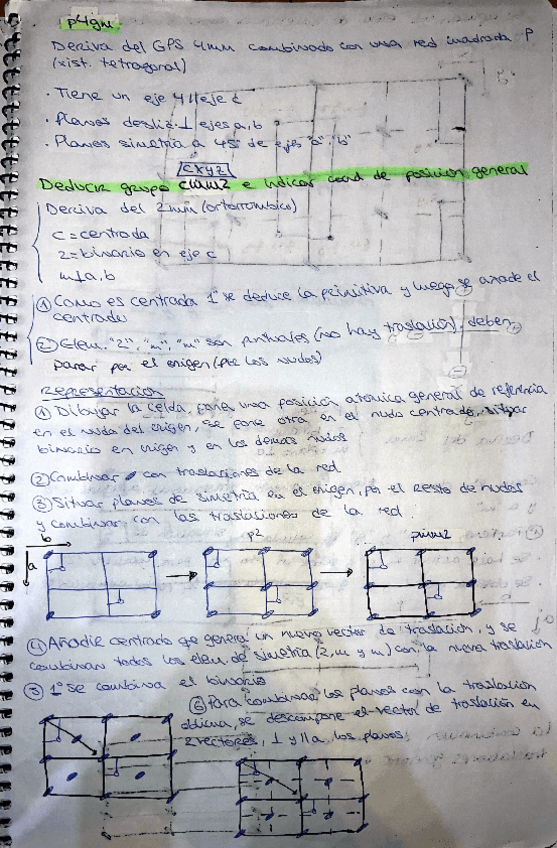 p4gm
Deriva del GPS 4mm combinado con una red cuadrada P
(sist. tetragonal)
· Tiene un eje 4 // eje c
· Planos desliz. ⊥ ejes a, b
· Planos simetría a 45° de ejes "a" "b"
[cxyz]
Deducir grupo cmm2 e indicar coord de posición general
Deriva del 2mm (ortorrómbico)
c = centrada
2 = binario en eje c
m ⊥ a, b
① Como es centrada 1º se deduce la primitiva y luego se añade el
centrado
② Elem. "2", "m", "m" son puntuales (no hay traslación), deben
pasar por el origen (por los nudos)
Representación
① Dibujar la celda, poner una posición atómica general de referencia
en el nudo del origen, se pone otra en el nudo centrado, situar
binario en origen y en los demás nudos
② Combinar con traslaciones de la red
③ Situar planos de simetría en el origen, por el resto de nudos
y combinar con las traslaciones de la red
b
a
p2
pmm2
④ Añadir centrado que genera un nuevo vector de traslación, y se
combinan todos los elem. de simetría (2, m y m) con la nueva traslación
⑤ 1º se combina el binario
⑥ Para combinar los planos con la traslación
oblicua, se descompone el vector de traslación en
2 vectores, ⊥ y // a los planos